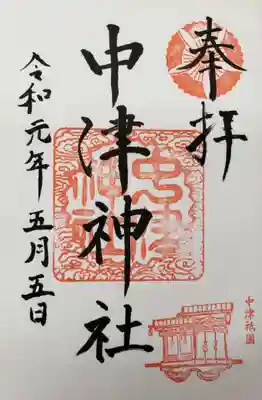 奉拝
中津神社
中津神社
中津祇園
令和元年五月五日